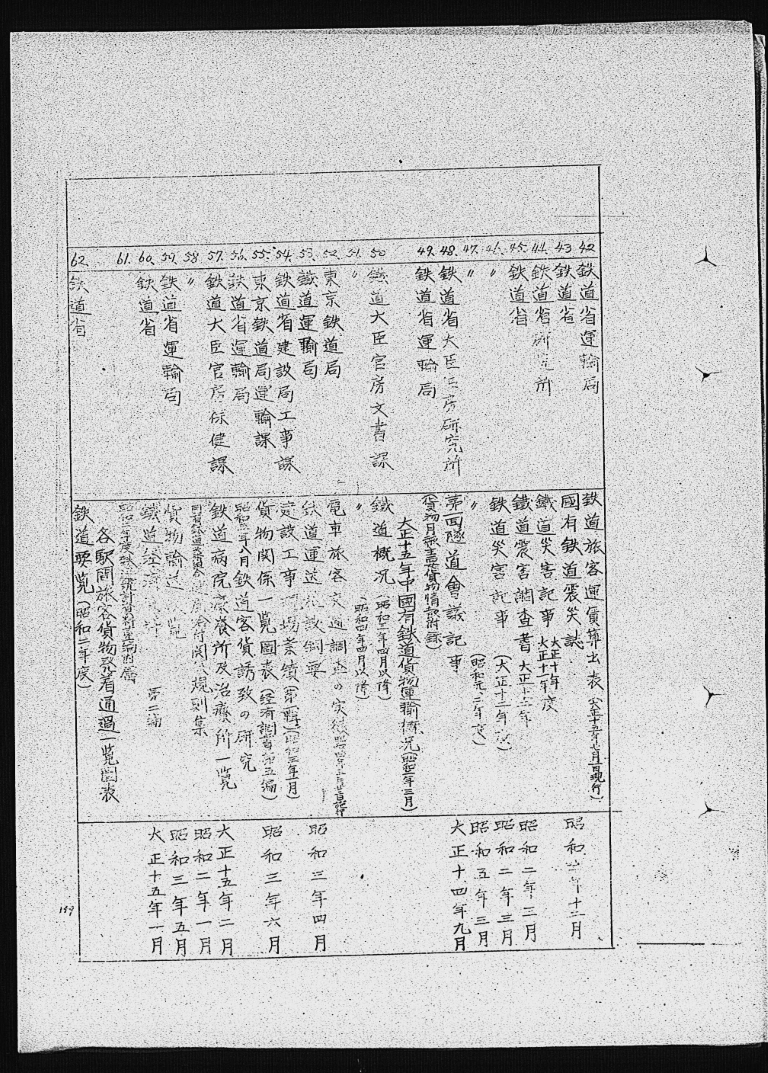 42.
鉄道省運輸局
鉄道旅客運賃算出表
43
鉄道省
國有鉄道震災誌
昭和 年十二月
44.
鉄道省研究所
鐵道災害記事 大正十年度 大正十一年度
45.
鉄道省
鐵道震害調査書 大正十二年
昭和二年三月
46.
〃
鉄道災害記事 (大正十二年度)
昭和二年三月
47.
〃
〃 (昭和元、二年度)
昭和五年三月
48.
鉄道省大臣官房研究所
第四 隧道會議記事
大正十四年九月
49.
鉄道省運輸局
大正十五年中國有鉄道貨物運輸概况 (昭和二年三月)
50
鐵道大臣官房文書課
鐵道概况 (昭和二年四月以降)
51.
〃
〃 (昭和四年四月以降)
52.
東京鉄道局
電車旅客交通調査の実績
53.
鐵道運輸局
鉄道運送施設綱要
昭和三年四月
54.
鉄道省建設局工事課
建設工事現場業績
55.
東京鉄道局運輸課
貨物関係一覧圖表 (経済調査第五編)
昭和三年六月
56.
鉄道省運輸局
昭和二年八月 鉄道客貨誘致の研究
57.
鉄道大臣官房保健課
鉄道病院療養所及治療所一覧
大正十五年二月
58.
〃
規則集
昭和二年一月
59.
鉄道省運輸局
貨物輸送 一覧
昭和三年五月
60.
鉄道省
鐵道経済 第二編
大正十五年一月
61.
各駅間旅客貨物発着通過一覧圖表
62.
鉄道省
鉄道要覧 (昭和二年度)
159